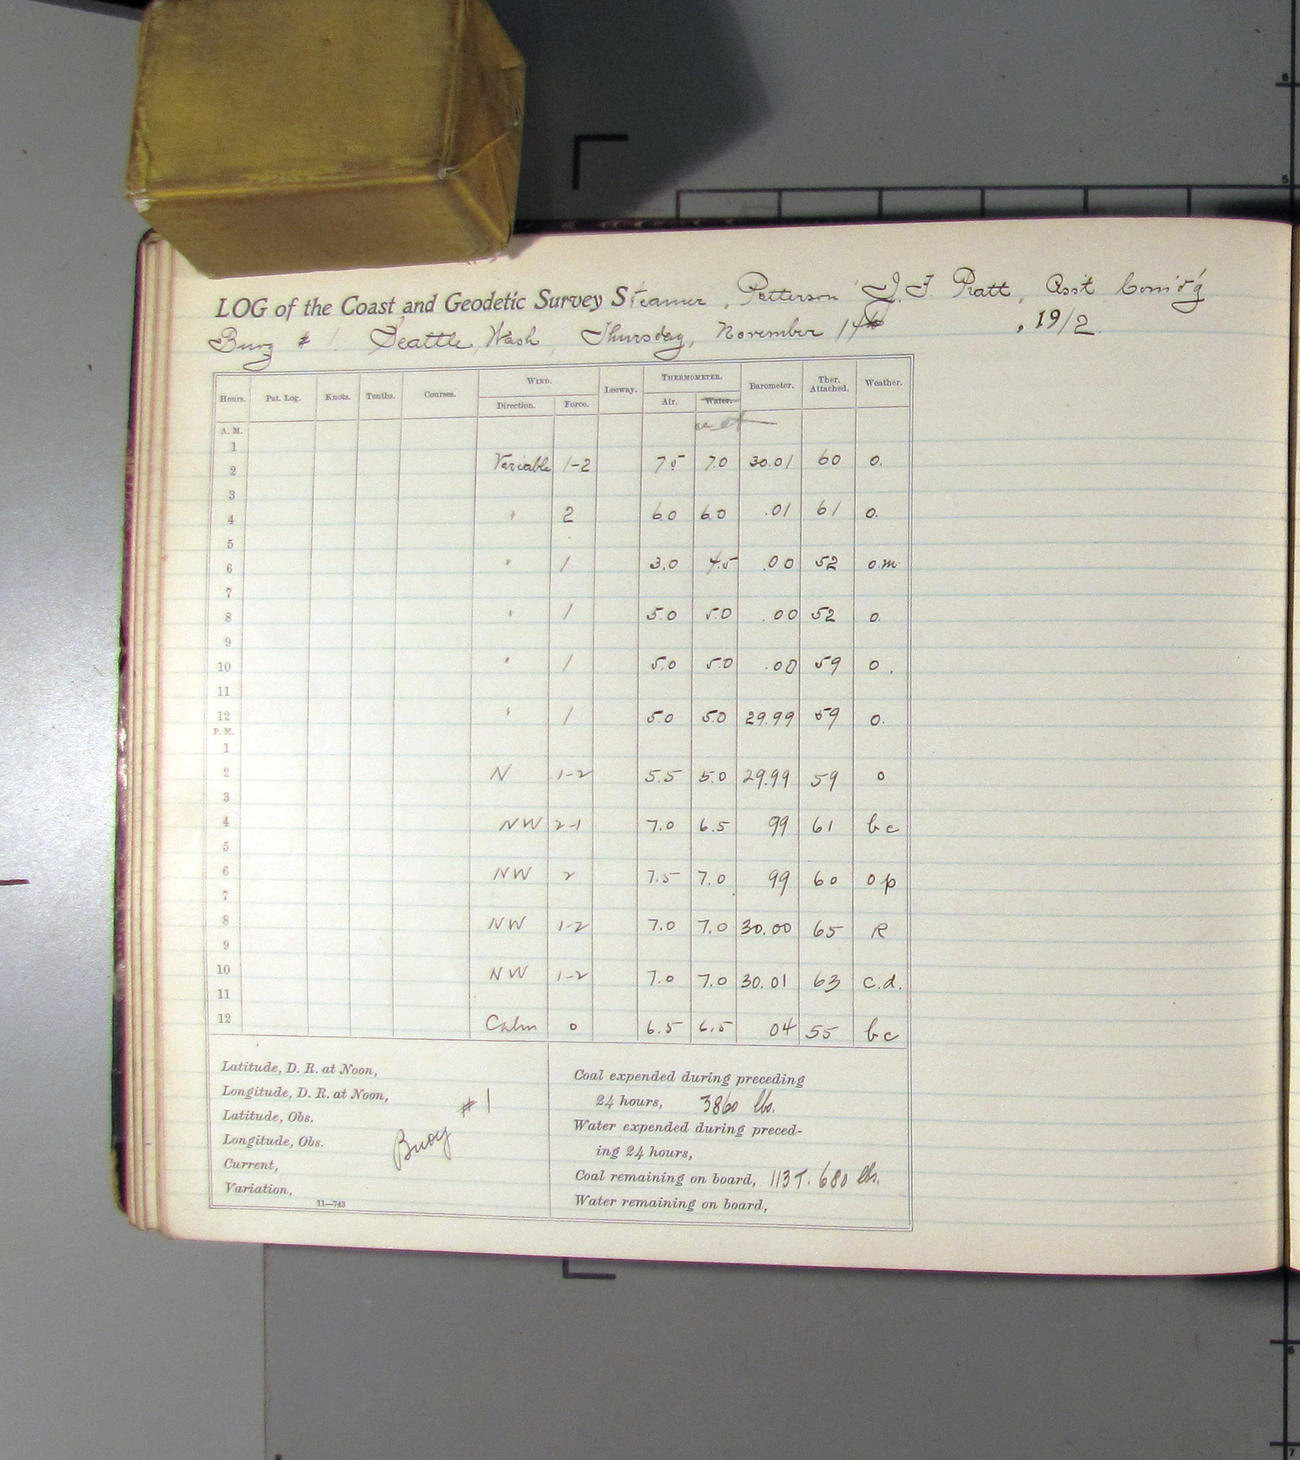 LOG of the Coast and Geodetic Survey Steamer, Patterson J. F. Pratt, Asst Com'd'g
Buoy # 1. Seattle, Wash, Thursday, November 14th, 1912
Hours. Pat. Log. Knots. Tenths. Courses. WIND. Leeway. THERMOMETER. Barometer. Ther. Attached. Weather.
Direction. Force. Air. Water.
A. M. wet
1
2 Variable 1-2 7.5 7.0 30.01 60 o.
3
4 " 2 6.0 6.0 .01 61 o.
5
6 " 1 3.0 4.5 .00 52 o.m.
7
8 " 1 5.0 5.0 .00 52 o.
9
10 " 1 5.0 5.0 .00 59 o.
11
12 " 1 5.0 5.0 29.99 59 o.
P. M.
1
2 N 1-2 5.5 5.0 29.99 59 o
3
4 NW 2-1 7.0 6.5 99 61 bc
5
6 NW 2 7.5 7.0 99 60 op
7
8 NW 1-2 7.0 7.0 30.00 65 R
9
10 NW 1-2 7.0 7.0 30.01 63 c.d.
11
12 Calm 0 6.5 6.5 04 55 bc
Latitude, D. R. at Noon,
Longitude, D. R. at Noon,
Latitude, Obs.
Longitude, Obs.
Current,
Variation,
Buoy #1
11—743
Coal expended during preceding
24 hours, 3860 lbs.
Water expended during preced-
ing 24 hours,
Coal remaining on board, 113 T. 680 lbs.
Water remaining on board,